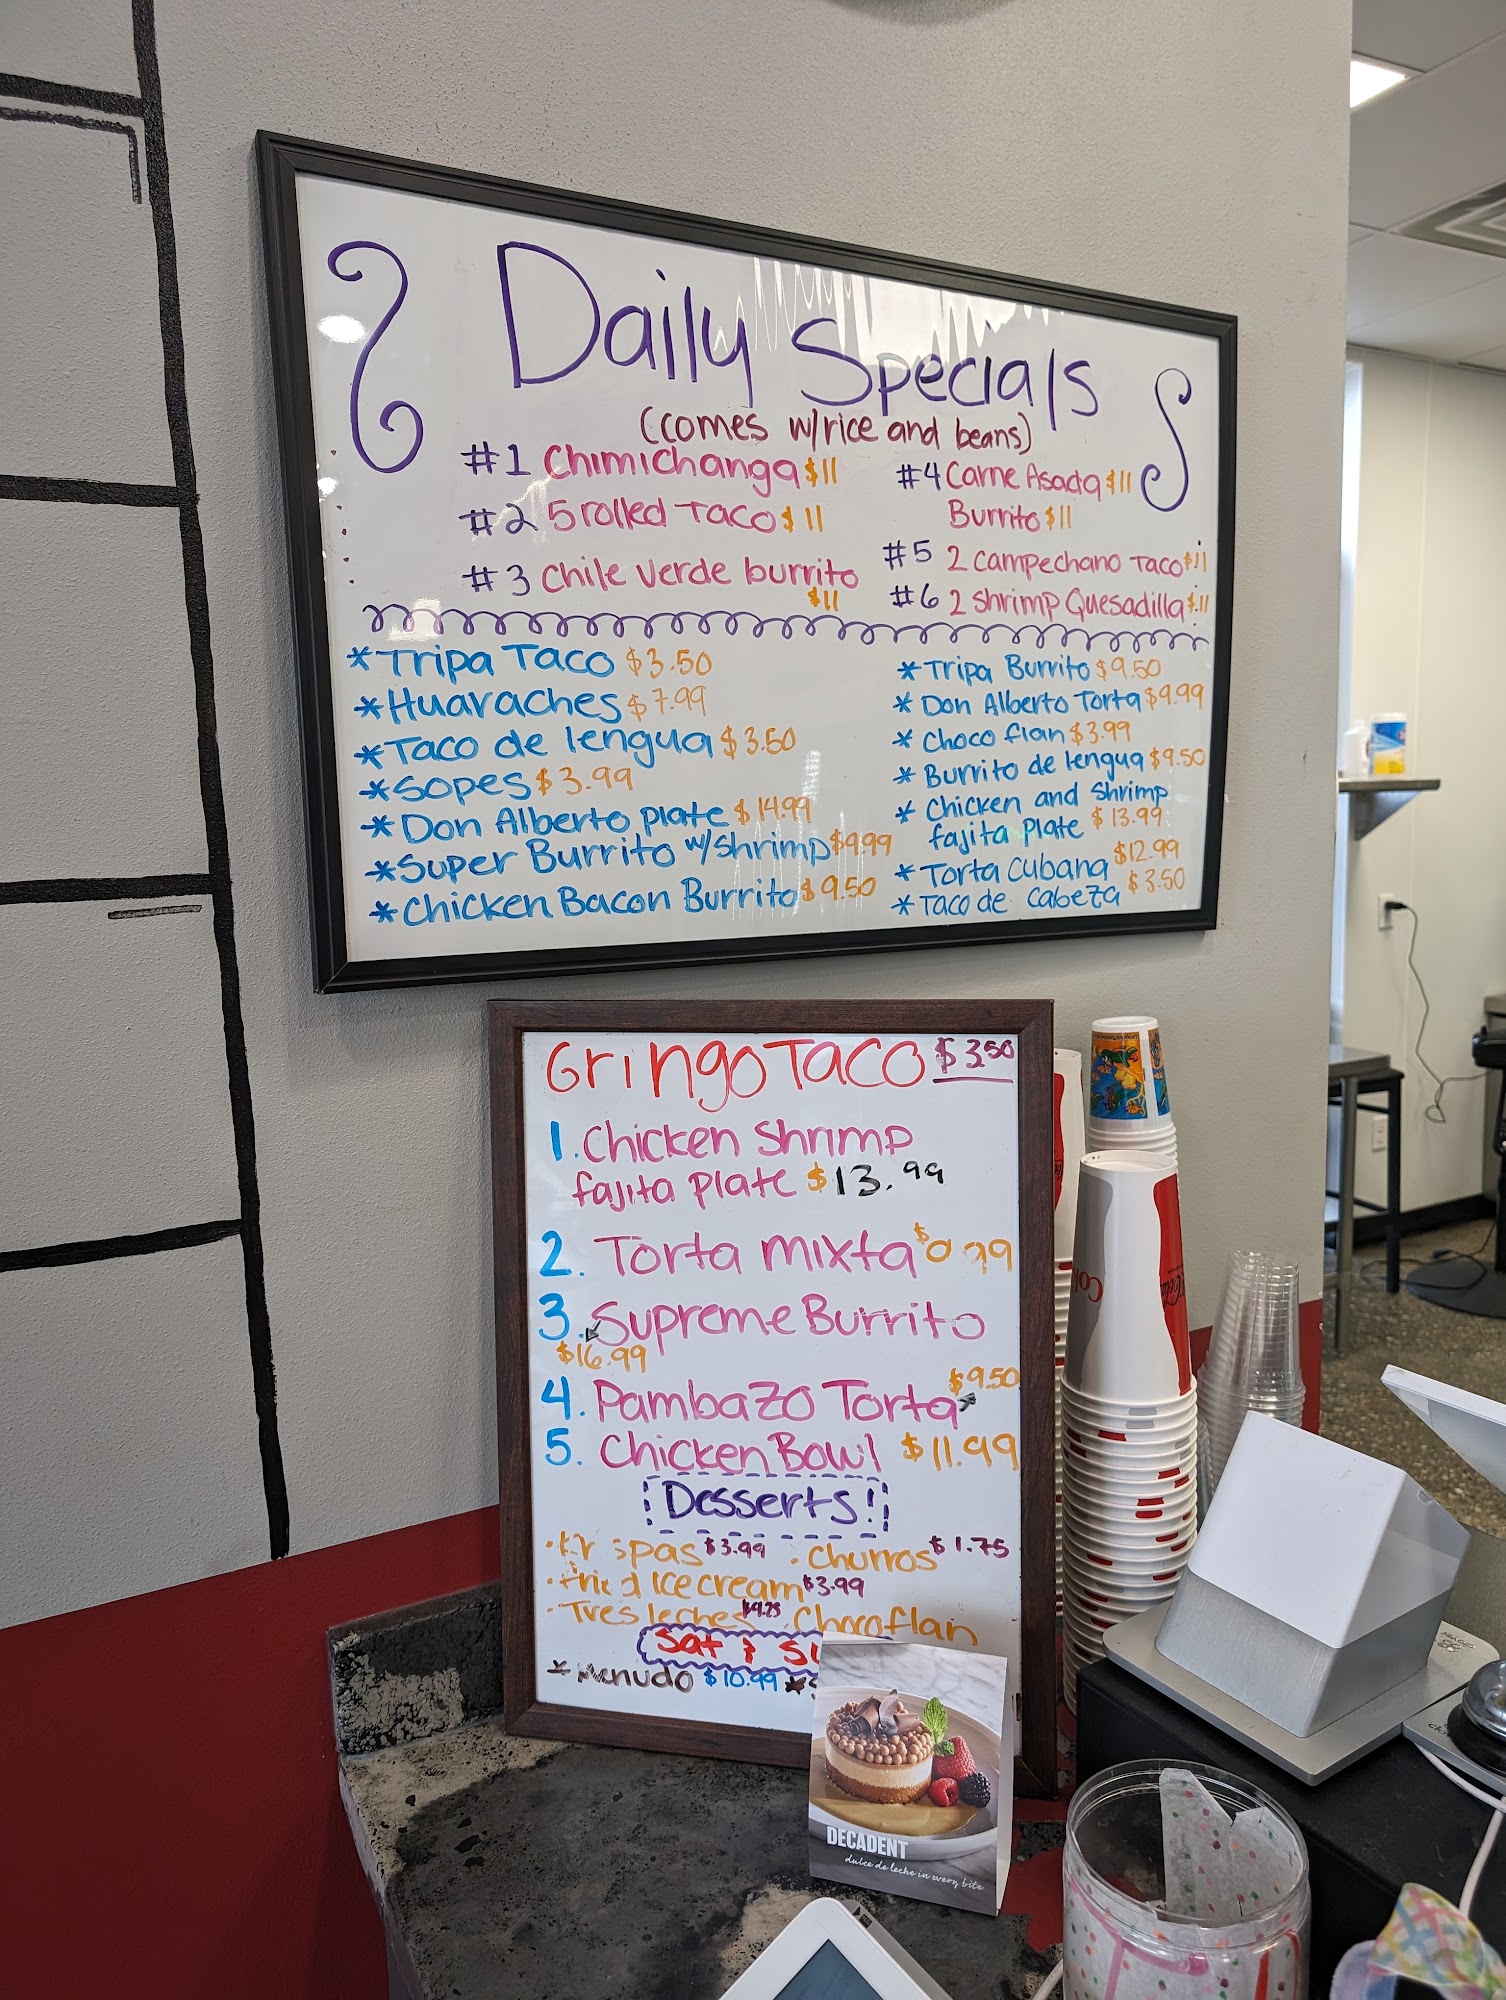 Daily Specials
(comes w/rice and beans)
#1 Chimichanga $11
#2 5 rolled Taco $11
#3 Chile Verde burrito
$11
#4 Carne Asada $11
Burrito $11
#5 2 Campechano Taco $11
#6 2 Shrimp Quesadilla $11
*Tripa Taco $3.50
*Huaraches $7.99
*Taco de lengua $3.50
*Sopes $3.99
*Don Alberto plate $14.99
*Super Burrito w/Shrimp $9.99
*Chicken Bacon Burrito $9.50
* Tripa Burrito $9.50
* Don Alberto Torta $9.99
* Choco flan $3.99
* Burrito de lengua $9.50
* Chicken and Shrimp
fajita plate $13.99
* Torta Cubana $12.99
* Taco de cabeza $3.50
Gringo Taco $3.50
1. Chicken Shrimp
fajita Plate $13.99
2. Torta mixta
3. Supreme Burrito
$16.99
4. Pambazo Torta $9.50
5. Chicken Bowl $11.99
Desserts!
$3.99 · Churros $1.75
· Fried Ice cream $3.99
· Tres leches $4.25 · Chocoflan
Sat &
* Menudo $10.99 *
DECADENT
dulce de leche in every bite